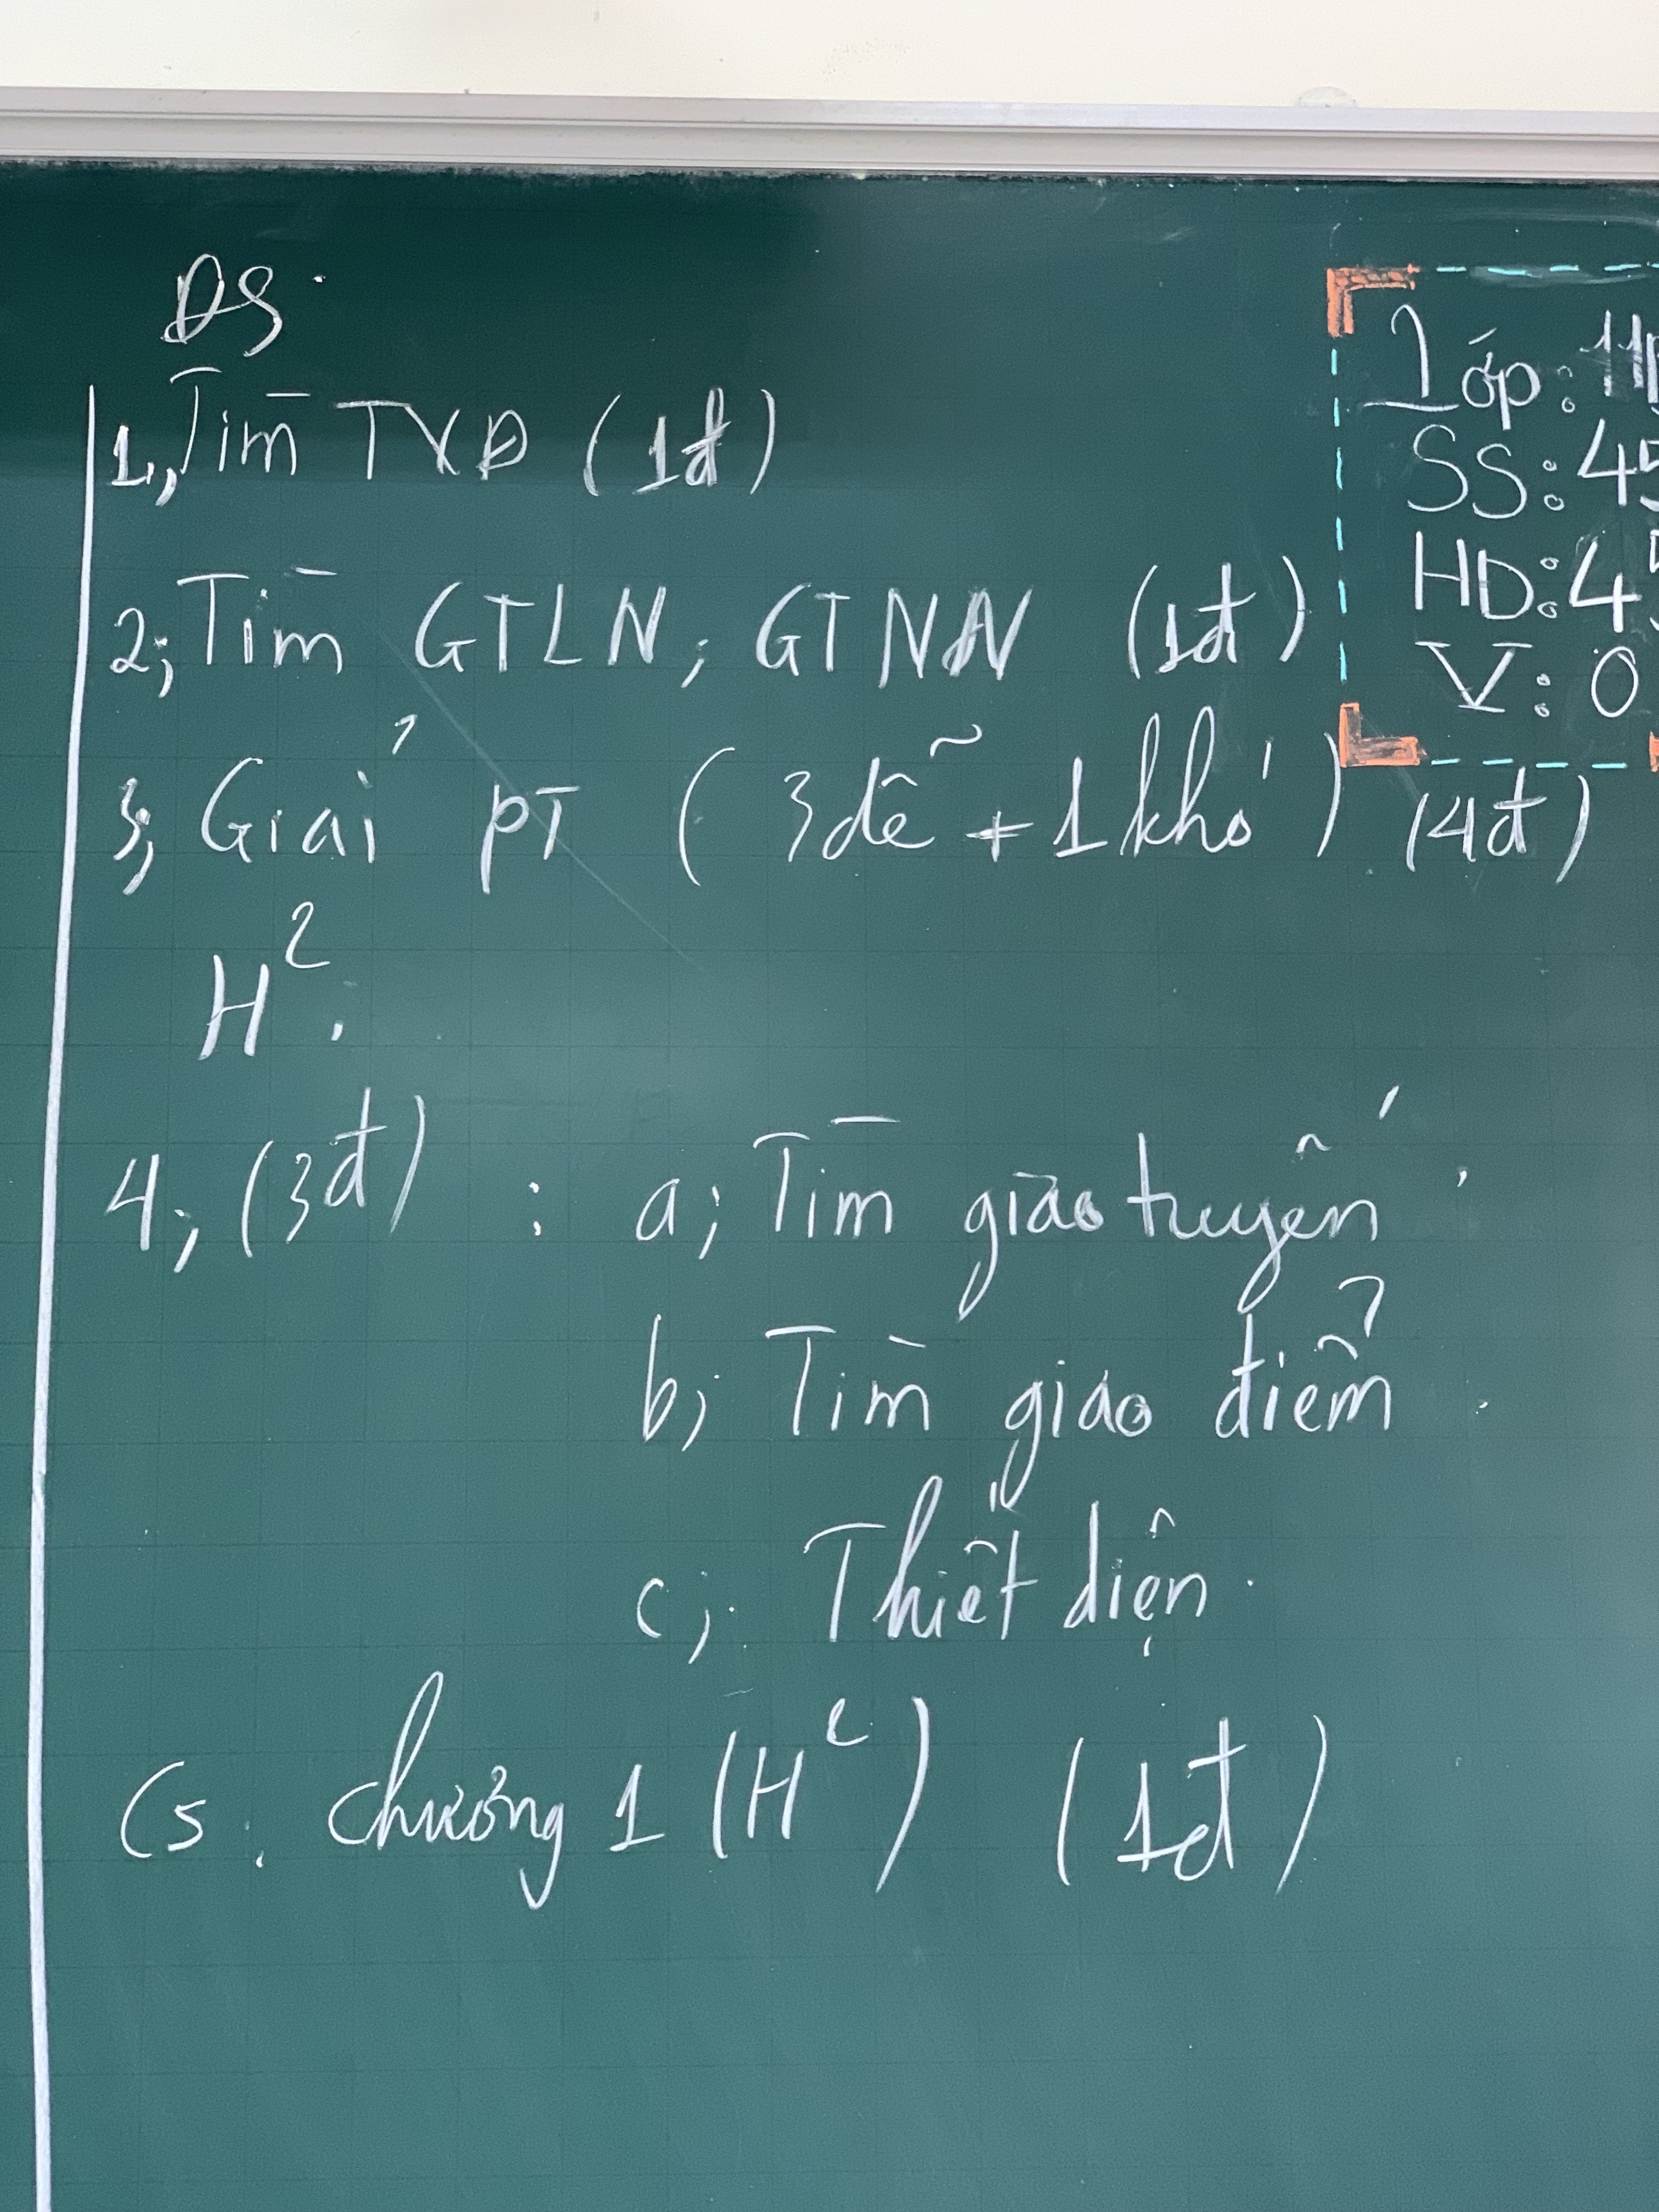 ĐS.
1, Tìm TXĐ (1đ)
2; Tìm GTLN; GTNN (1đ)
3; Giải pt (3 dễ + 1 khó) (4đ)
H²:
4; (3đ) : a; Tìm giao tuyến.
b; Tìm giao điểm.
c; Thiết diện.
C5. Chương 1 (H²) (1đ)
Lớp: 11
SS: 45
HD: 45
V: 0